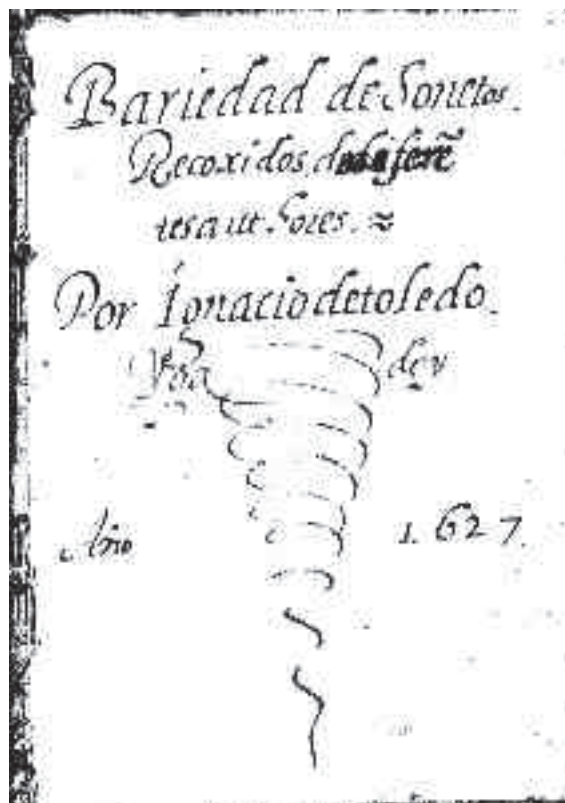 Bariedad de Sonetos.
Recoxidos de diferẽ
tes autores. ≈
Por Ignacio detoledo.
Año 1627